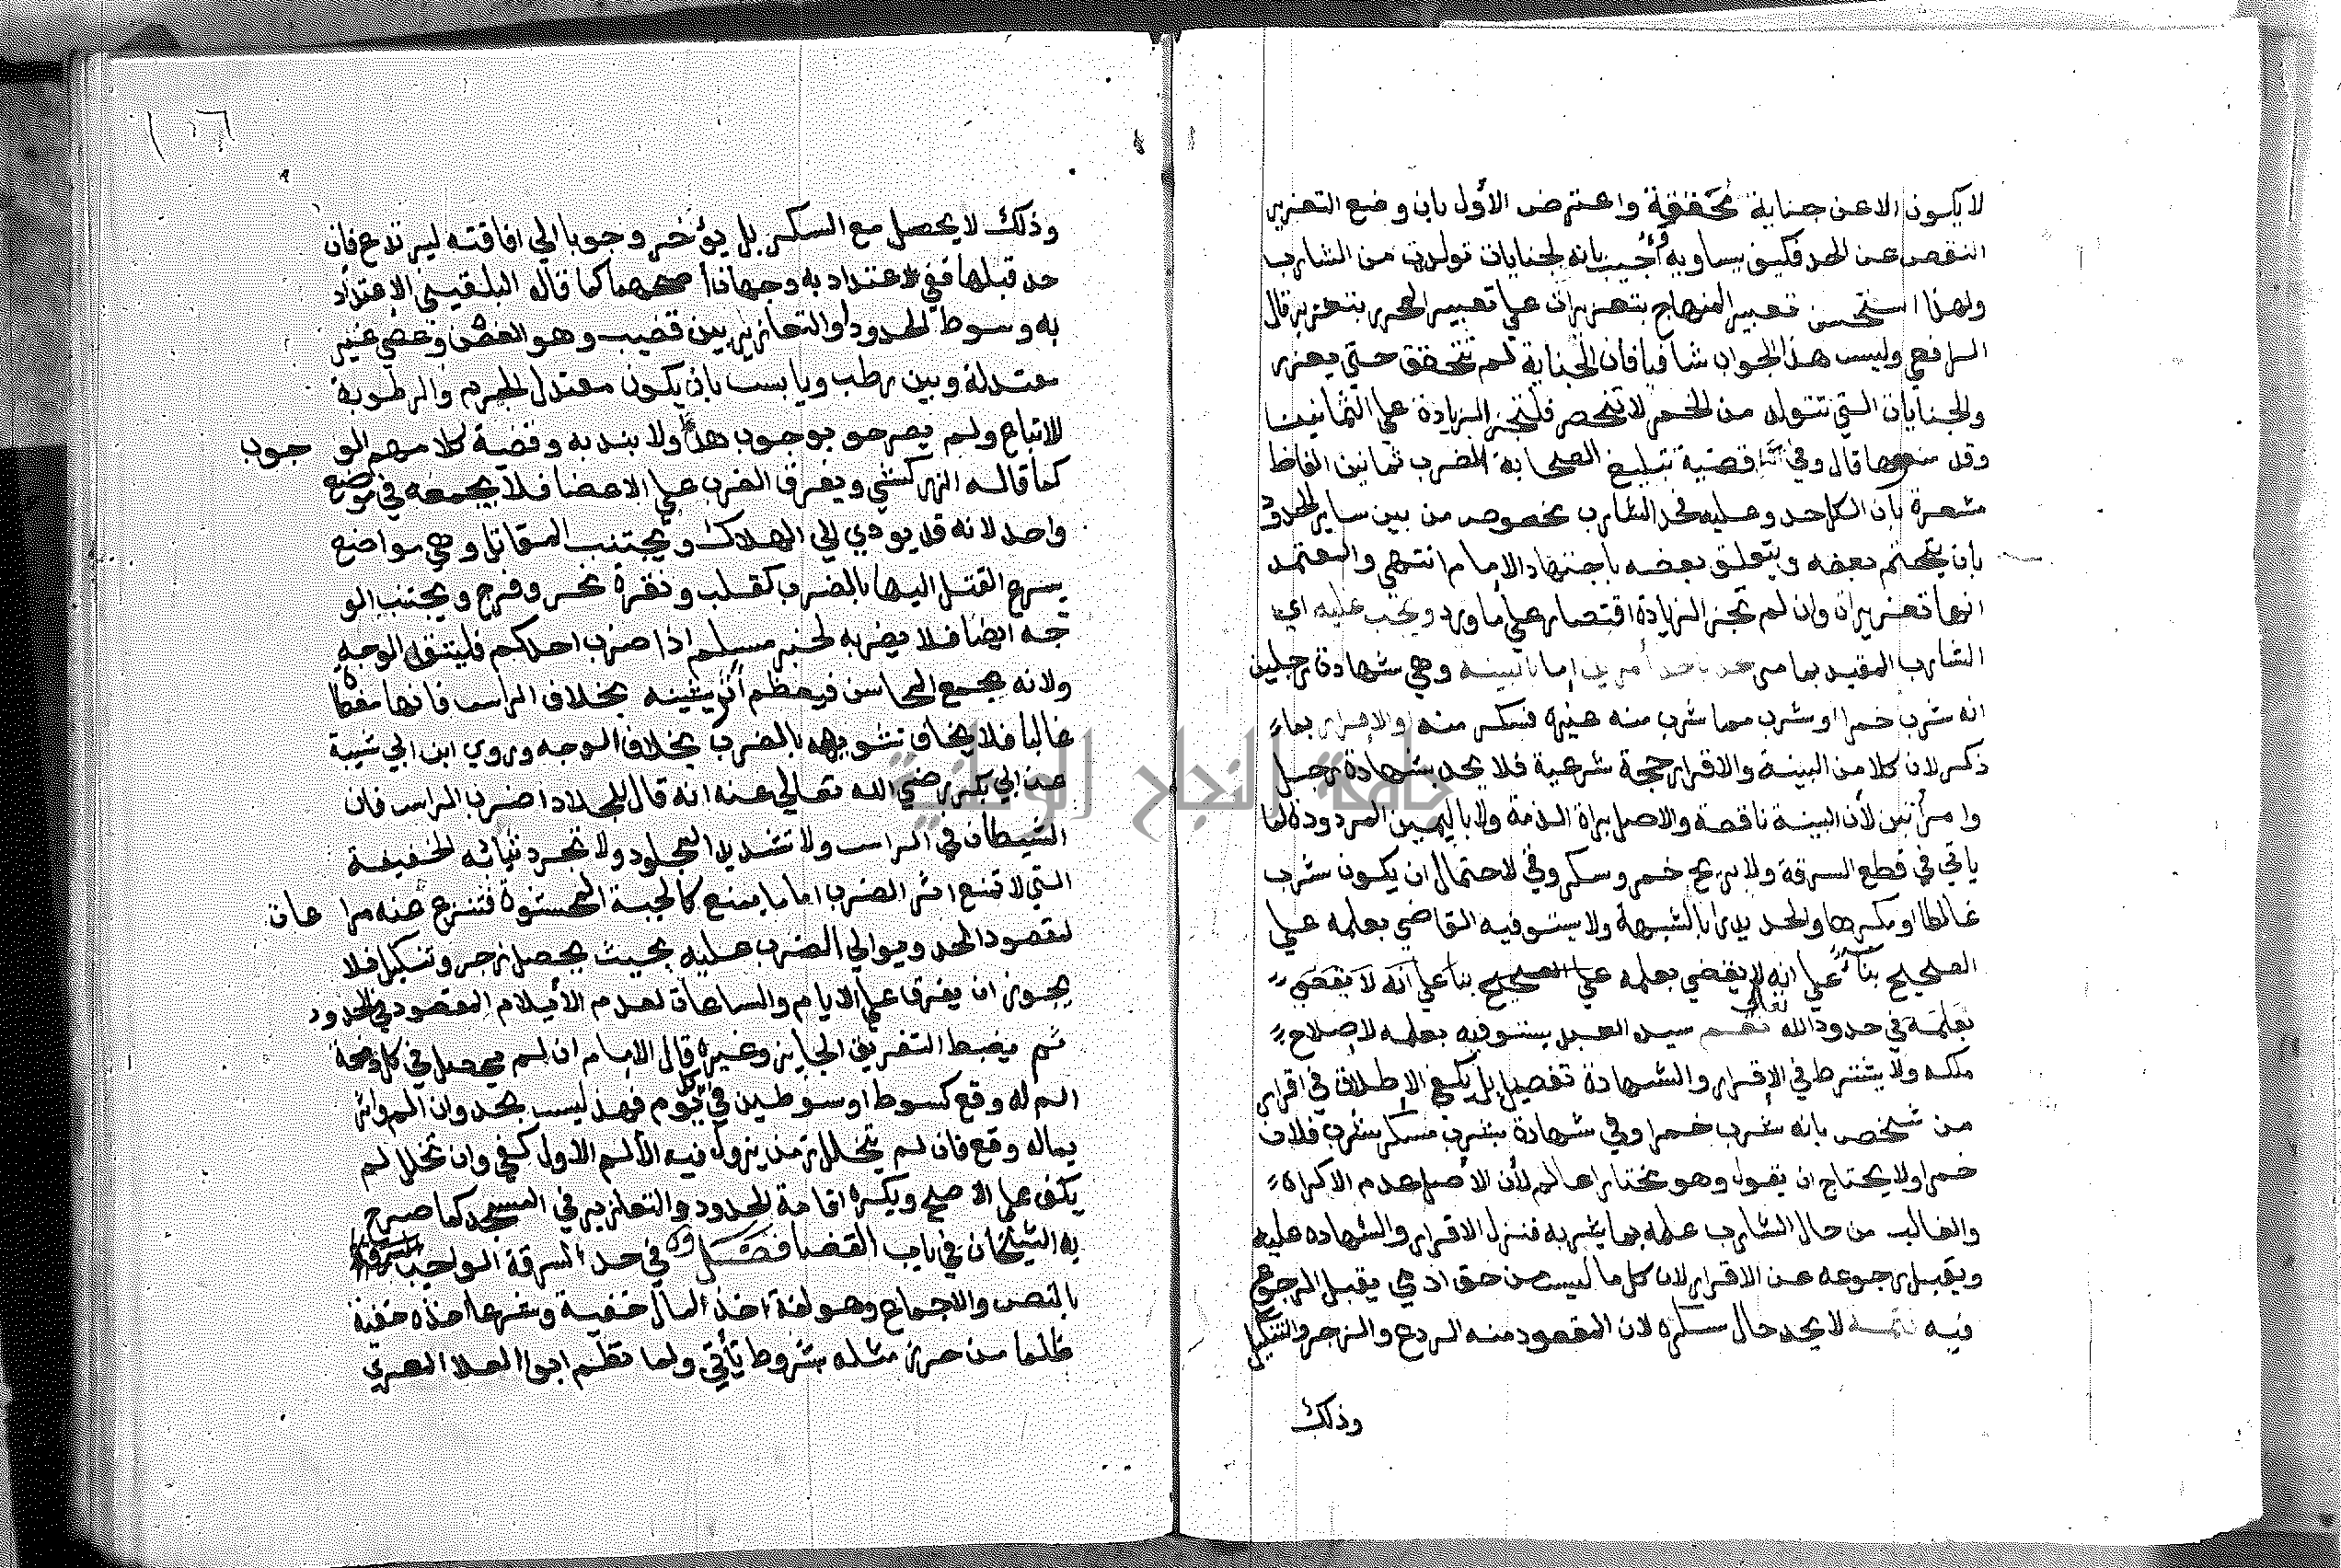 لا يكون الا عن جناية محققة واعترض الأول بان وضع التعزير
النقص عن الحد فكيف يساويه وأجيب بانه لجنايات تولدت من الشارب
ولهذا استحسن تعبير المنهاج بتعزيرات علي تعبير المحرر بتعزير قال
الرافعي وليس هذا الجواب شافيا فان الجناية لم تتحقق حتي يعزر
والجنايات التي تتولد من الخمر لا تنحصر فلتجز الزيادة علي الثمانين
وقد منعوها قال وفي قصة تبليغ الصحابة الضرب ثمانين الفاظ
مشعرة بان الكل حد وعليه فحد الشارب مخصوص من بين ساير الحدود
بان يتحتم بعضه ويتعلق بعضه باجتهاد الامام انتهي والمعتمد
انها تعزيرات وان لم تجز الزيادة اقتصارا علي ما ورد ويجب عليه اي
الشارب المقيد بما مر حد باحد أمرين اما بالبينة وهي شهادة رجلين
انه شرب خمرا او شرب مما شرب منه غيره فسكر منه او الاقرار بما
ذكر لان كلا من البينة والاقرار حجة شرعية فلا يحد بشهادة رجل
وامرأتين لأن البينة ناقصة والاصل براة الذمة ولا باليمين المردودة لما
ياتي في قطع السرقة ولا بريح خمر وسكر وقي لاحتمال ان يكون شرب
غالطا او مكرها والحد يدرا بالشبهة ولا يستوفيه القاضي بعلمه علي
الصحيح بناً علي انه لا يقضي بعلمه علي الصحيح بنا علي انه لا يقضي
بعلمه في حدود الله تعالي نعم سيد العبد يستوفيه بعلمه لاصلاح
ملكه ولا يشترط في الاقرار والشهادة تفصيل بل يكفي الاطلاق في اقرار
من شخص بانه شرب خمرا وفي شهادة بشرب مسكر شرب فلان
خمرا ولا يحتاج ان يقول وهو مختار عالم لأن الأصل عدم الاكراه
والغالب من حال الشارب علمه بما يشربه فنزل الاقرار والشهاده عليه
ويقبل رجوعه عن الاقرار لان كل ما ليس من حق ادمي يقبل الرجوع
فيه تتمة لا يحد حال سكره لان المقصود منه الردع والزجر والتنكيل
وذلك
وذلك لا يحصل مع السكر بل يؤخر وجوبا الي افاقته ليرتدع فان
حد قبلها ففي الاعتداد به وجهان أصحهما كما قاله البلقيني الاعتداد
به وسوط الحدود او التعازير بين قضيب وهو الغصن وعصي غير
معتدلة وبين رطب ويابس بان يكون معتدل الجرم والرطوبة
للاتباع ولم يصرحو بوجوب هذا ولا بندبه وقضية كلامهم الو جوب
كما قاله الزركشي ويفرق الضرب علي الاعضا فلا يجمعه في موضع
واحد لانه قد يودي الي الهلاك ويجتنب المقاتل وهي مواضع
يسرع القتل اليها بالضرب كقلب ونقرة نحر وفرج ويجتنب الو
جه ايضا فلا يضربه لخبر مسلم اذا ضرب احدكم فليتق الوجه
ولانه مجمع المحاسن فيعظم أثر شينه بخلاف الراس فانها مغطاة
غالبا فلا يخاف تشويهه بالضرب بخلاف الوجه وروي ابن ابي شيبة
عن ابي بكر رضي الله تعالي عنه انه قال للجلاد اضرب الراس فان
الشيطان في الراس ولا تشد يد المجلود ولا تجرد ثيابه الخفيفة
التي لا تمنع اثر الضرب اما ما يمنع كالجبة المحشوة فتنزع عنه مرا عاة
لمقصود الحد ويوالي الضرب عليه بحيث يحصل زجر وتنكيل فلا
يجوز ان يفرق علي الايام والساعات لعدم الأيلام المقصود في الحدود
ثم يضبط التفريق الجايز وغيره قال الامام ان لم يحصل في كل دفعة
الم له وقع كسوط او سوطين في كل يوم فهذا ليس بحد وان الم واثر
بماله وقع فان لم يتخلل زمن يزول فيه الألم الاول كفي وان تخلل لم
يكف علي الاصح ويكره اقامة الحدود والتعازير في المسجد كما صرح
به الشيخان في باب القضا فصل في حد السرقة الواجب
بالنص والاجماع وهو لغة اخذ المال خفية وشرعا اخذه خفية
ظلما من حرز مثله بشروط تأتي ولما نظم ابو العلا المعري